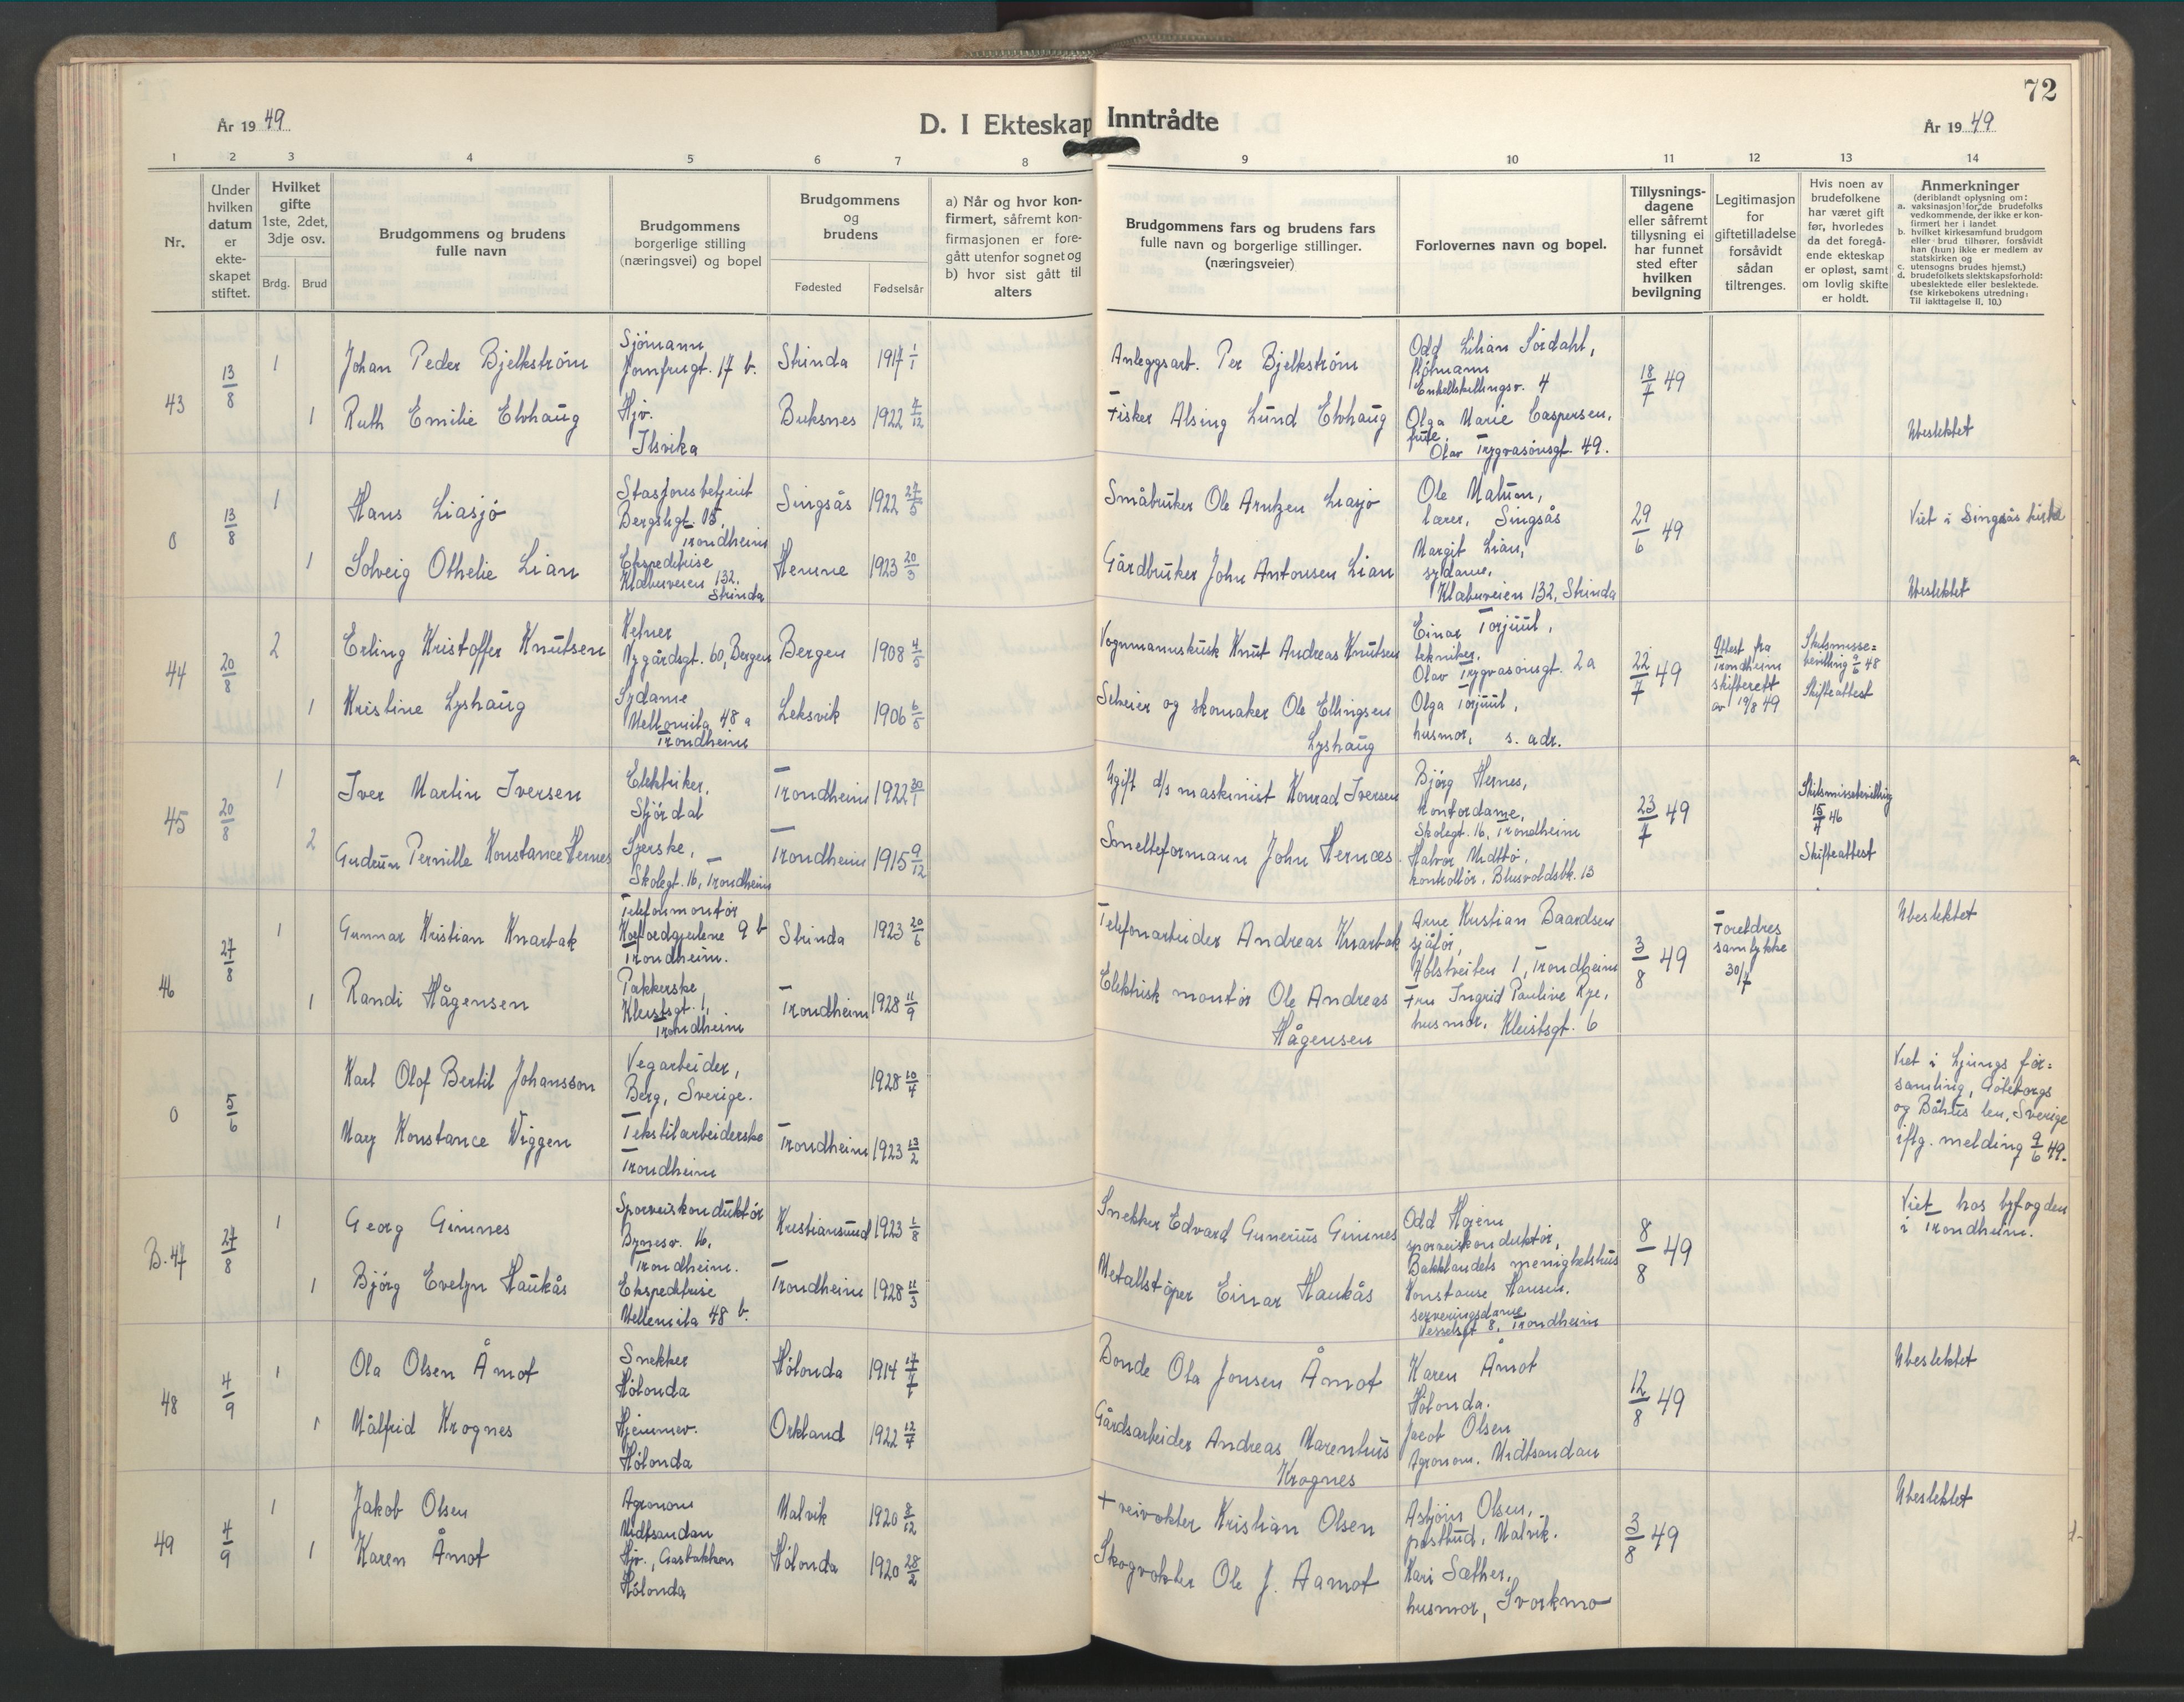 72
År 19 49
D. I Ekteskap Inntrådte
År 19 49
1 2 3 4 5 6 7 8 9 10 11 12 13 14
Nr.
Under hvilken datum er ekteskapet stiftet.
Hvilket gifte 1ste, 2det, 3dje osv.
Brdg. Brud
Brudgommens og brudens fulle navn
Brudgommens borgerlige stilling (næringsvei) og bopel
Brudgommens og brudens
Fødested Fødselsår
a) Når og hvor konfirmert, såfremt konfirmasjonen er foregått utenfor sognet og b) hvor sist gått til alters
Brudgommens fars og brudens fars fulle navn og borgerlige stillinger. (næringsveier)
Forlovernes navn og bopel.
Tillysningsdagene eller såfremt tillysning ei har funnet sted efter hvilken bevilgning
Legitimasjon for giftetilladelse forsåvidt sådan tiltrenges.
Hvis noen av brudefolkene har været gift før, hvorledes da det foregående ekteskap er opløst, samt om lovlig skifte er holdt.
Anmerkninger
(deriblandt oplysning om:
a. vaksinasjon for de brudefolks vedkommende, der ikke er konfirmert her i landet
b. hvilket kirkesamfund brudgom eller brud tilhører, forsåvidt han (hun) ikke er medlem av statskirken og
c. utensogns brudes hjemst.)
d. brudefolkets slektskapsforhold: ubeslektede eller beslektede.
(se kirkebokens utredning: Til iakttagelse II. 10.)
43
13/8
1
Johan Peder Bjelkström
Sjömann
Jomfrugt. 17 b.
Strinda
1917 1/1
Anleggsarb. Per Bjelkström
Odd Lilian Sördahl,
sjömann
Enkeltskillingsv. 4
18/7 49
1
Ruth Emilie Elvhaug
Hjv.
Ilsvika
Buksnes
1922 7/12
Fisker Alsing Lund Elvhaug
Olga Marie Caspersen,
frue,
Olav Trygvasönsgt. 49.
Ubeslektet
0
13/8
1
Hans Liasjö
Stasjonsbetjent
Bergsligt. 15,
Trondheim
Singsås
1922 27/5
Småbruker Ole Arntzen Liasjö
Ole Malum,
lærer, Singsås
29/6 49
Viet i Singsås kirke
1
Solveig Othelie Lian
Ekspeditrise
Klæbuveien 132.
Strinda
Hemne
1923 20/3
Gårdbruker John Antonsen Lian
Margit Lian,
sydame,
Klæbuveien 132, Strinda
Ubeslektet
44
20/8
2
Erling Kristoffer Knutsen
Kelner
Nygårdsgt. 60, Bergen
Bergen
1908 4/5
Vognmannskusk Knut Andreas Knutsen
Einar Torjuul,
tekniker,
Olav Trygvasönsgt. 2a
22/7 49
Attest fra
Trondheim
skifterett
av 19/8 49
Skilsmisse=
bevilling 9/6 48
Skifteattest
1
Kristine Lyshaug
Sydame
Mellomila 48 a
Trondheim
Leksvik
1906 6/5
Seleier og skomaker Ole Ellingsen
Lyshaug
Olga Torjuul,
husmor, s. adr.
45
20/8
1
Iver Martin Iversen
Elektriker,
Stjördal
Trondheim
1922 30/1
Ugift d/s maskinist Konrad Iversen
Bjørg Hernes,
kontordame,
Skolegt. 16, Trondheim
23/7 49
Skilsmissebevilling
15/7 46
Skifteattest
2
Gudrun Pernille Konstance Hernes
Syerske,
Skolegt. 16, Trondheim
Trondheim
1915 9/12
Smelteformann John Hernæs.
Halvor Midttö,
kontrollör, Blusvoldsbk. 13
46
27/8
1
Gunnar Kristian Knarbak
Telefonmontör
9 b
Trondheim.
Strinda
1923 20/6
Telefonarbeider Andreas Knarbak
Arne Kristian Baardsen
sjåför,
Holstveiten 1, Trondheim
3/8 49
Foreldres
samtykke
30/7
Ubeslektet
1
Randi Hågensen
Pakkerske,
Kleistsgt. 1,
Trondheim
Trondheim
1928 11/9
Elektrisk montör Ole Andreas
Hågensen
Fru Ingrid Pauline Rye,
husmor, Kleistsgt. 6
0
5/6
Karl Olof Bertil Johansson
Vegarbeider,
Berg, Sverige.
1928 10/4
Viet i Ljungs för=
samling, Göteborgs
og Bohus len, Sverige
iflg. melding 9/6 49.
May Konstance Wiggen
Tekstilarbeiderske
Trondheim
Trondheim
1923 13/2
B. 47
27/8
1
Georg Gimnes
Sporveiskonduktör
Bynesv. 16,
Trondheim.
Kristiansund
1923 1/8
Snekker Edvard Gunerius Gimnes
Odd Hojem
sporveiskonduktör,
Bakklandets menighetshus
8/8 49
Viet hos byfogden
i Trondheim.
1
Bjørg Evelyn Haukås
Ekspeditrise
Mellemila 48 b.
Trondheim
1928 11/3
Metallstöper Einar Haukås
Konstanse Hansen,
serveringsdame
Vesselsgt 8, Trondheim
48
4/9
1
Ola Olsen Åmot
Snekker
Hölonda
Hölonda
1914 17/7
Bonde Ola Jonsen Åmot
Karen Åmot
Hölonda.
12/8 49
Ubeslektet
1
Målfrid Krognes
Hjemmev.
Hölonda
Orkland
1922 12/7
Gårdsarbeider Andreas Marenhus
Krognes
Jacob Olsen
Agronom, Midtsandan
49
4/9
1
Jakob Olsen
Agronom
Midtsandan
Malvik
1920 8/12
+ veivokter Kristian Olsen
Asbjörn Olsen,
postbud, Malvik.
3/8 49
Ubeslektet
1
Karen Åmot
Hjv., Gåsbakken
Hölonda
Hölonda
1920 28/2
Skogvokter Ole J. Aamot
Kari Sæther,
husmor, Svorkmo